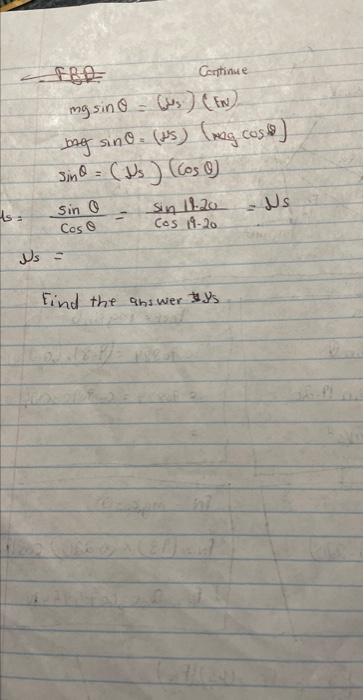 FBD Continue
mg sin θ = (μs) (FN)
mg sin θ = (μs) (mg cos θ)
sin θ = (μs) (cos θ)
μs = sin θ / cos θ = sin 19.20 / cos 19.20 = μs
μs =
Find the answer μs